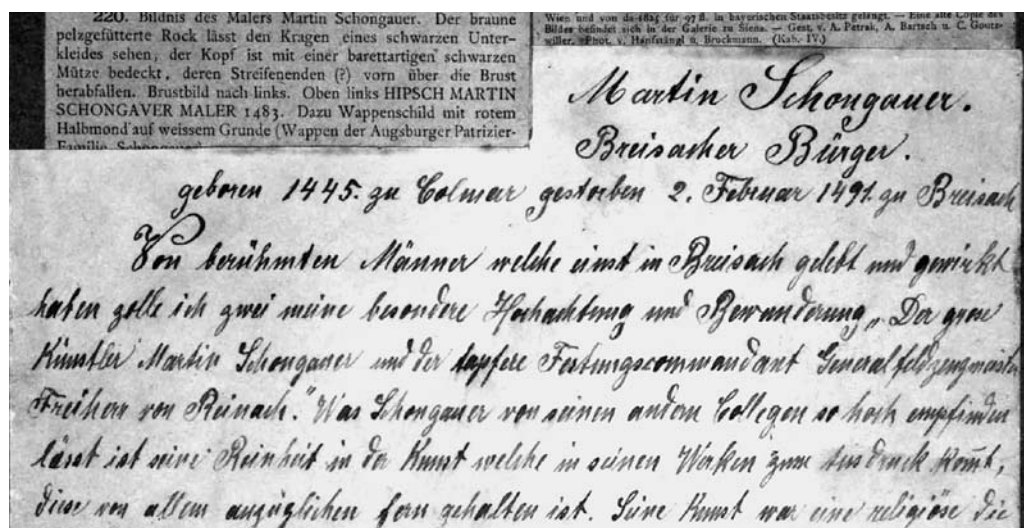 220. Bildnis des Malers Martin Schongauer. Der braune
pelzgefütterte Rock lässt den Kragen eines schwarzen Unter-
kleides sehen, der Kopf ist mit einer barettartigen schwarzen
Mütze bedeckt, deren Streifenenden (?) vorn über die Brust
herabfallen. Brustbild nach links. Oben links HIPSCH MARTIN
SCHONGAVER MALER 1483. Dazu Wappenschild mit rotem
Halbmond auf weissem Grunde (Wappen der Augsburger Patrizier-
Familie Schongauer)
Wien und von da 1825 für 97 fl. in bayerischen Staatsbesitz gelangt. — Eine alte Copie des
Bildes befindet sich in der Galerie zu Siena. — Gest. v. A. Petrak, A. Bartsch u. C. Goutz-
willer. Phot. v. Hanfstängl u. Bruckmann. (Kab. IV.)
Martin Schongauer.
Breisacher Bürger.
geboren 1445. zu Colmar gestorben 2. Februar 1491. zu Breisach
Von berühmten Männer welche einst in Breisach gelebt und gewirkt
haben zolle ich zwei meine besondere Hochachtung und Bewunderung „Der grose
Künstler Martin Schongauer und der tapfere Festungscommandant Generalfeldzeugmeister
Freiherr von Reinach." Was Schongauer von seinen andern Collegen so hoch empfinden
lässt ist seine Reinheit in der Kunst welche in seinen Werken zum Ausdruck komt,
diese von allem anzüglichen fern gehalten ist. Seine Kunst war eine religiöse die